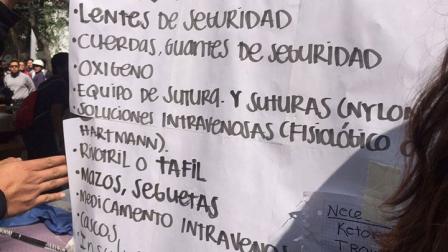 ·LENTES DE SEGURIDAD
·CUERDAS, GUANTES DE SEGURIDAD
·OXIGENO
·EQUIPO DE SUTURA. Y SUTURAS (NYLON
·SOLUCIONES INTRAVENOSAS (FISIOLÓGICO O
HARTMANN).
·RIVOTRIL O TAFIL
·MAZOS, SEGUETAS
·MEDICAMENTO INTRAVENO
·CASCOS
Nece
Ketor